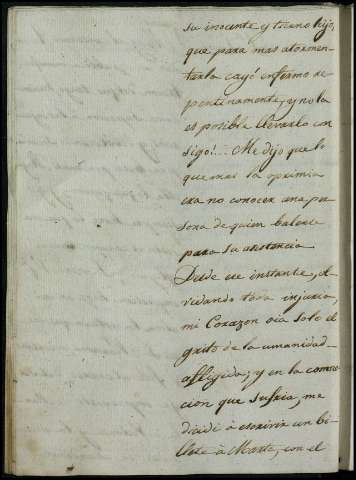 su inocente y tierno hijo,
que para mas atormen-
tarla cayó enfermo re-
pentinamente, y no la
es posible llevarlo con
sigo!... Me dijo que lo
que mas la oprimia
era no conocer una per
sona de quien valerse
para su asistencia
Desde ese instante, ol
vidando toda injuria,
mi Corazon oia solo el
grito de la umanidad
afligida; y en la conmo
cion que sufria, me
decidí à escrivir un bi-
llete à Marta, con el